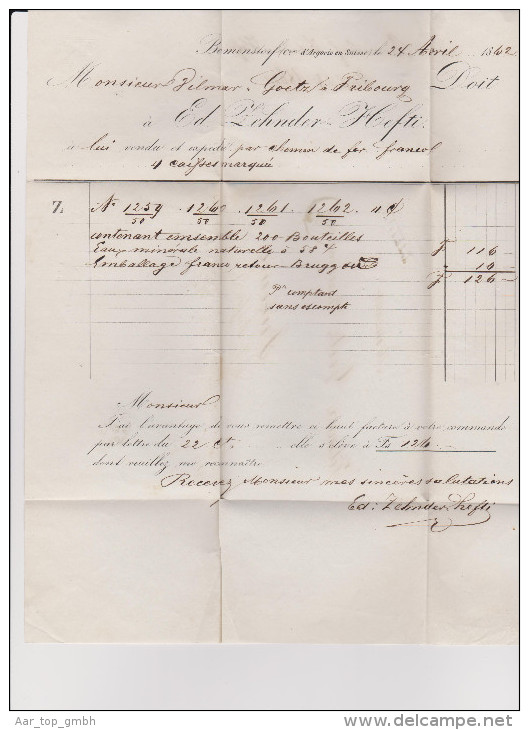 Birmensdorf d'Argovie en Suisse, le 24 Avril 1862
Monsieur Vilmar Goetz à Fribourg Doit
à Ed Zehnder-Hefti.
à lui vendu et expédié par chemin de fer franco
4 caisses marquée
7. No 1259 . 1260 . 1261 . 1262
50 50 50 50
contenant ensemble 200 Bouteilles
Eaux minérale naturelle à 58 116
Emballage franco retour Brugg 10
f 126
pr comptant
sans escompte
Monsieur
J'ai l'avantage de vous remettre ci haut facture à votre commande
par lettre du 22 ct. elle s'élève à Fs 126.
dont veuillez me reconnaître
Recevez Monsieur mes sincères salutations
Ed: Zehnder-Hefti
Aar_top_gmbh
www.delcampe.net